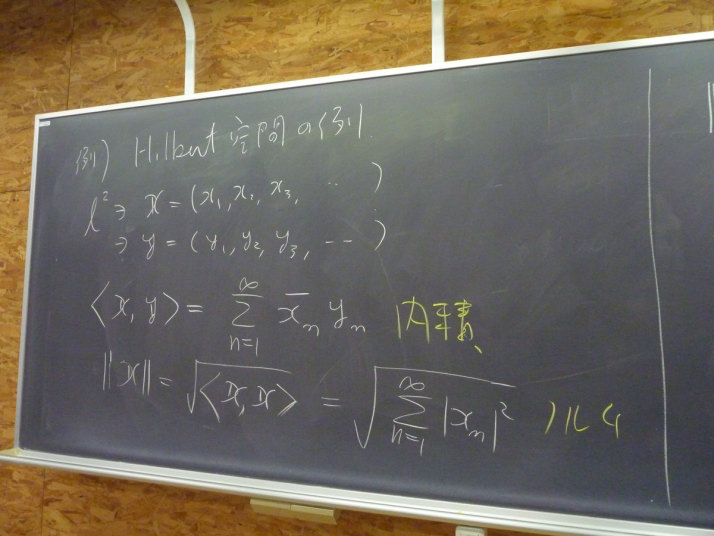 例) Hilbert空間の例
l² ∋ x = (x₁, x₂, x₃, ‥ )
∋ y = (y₁, y₂, y₃, --- )
⟨x, y⟩ = ∑_{n=1}^{∞} x̄ₙ yₙ 内積
||x|| = √⟨x, x⟩ = √(∑_{n=1}^{∞} |xₙ|²) ノルム